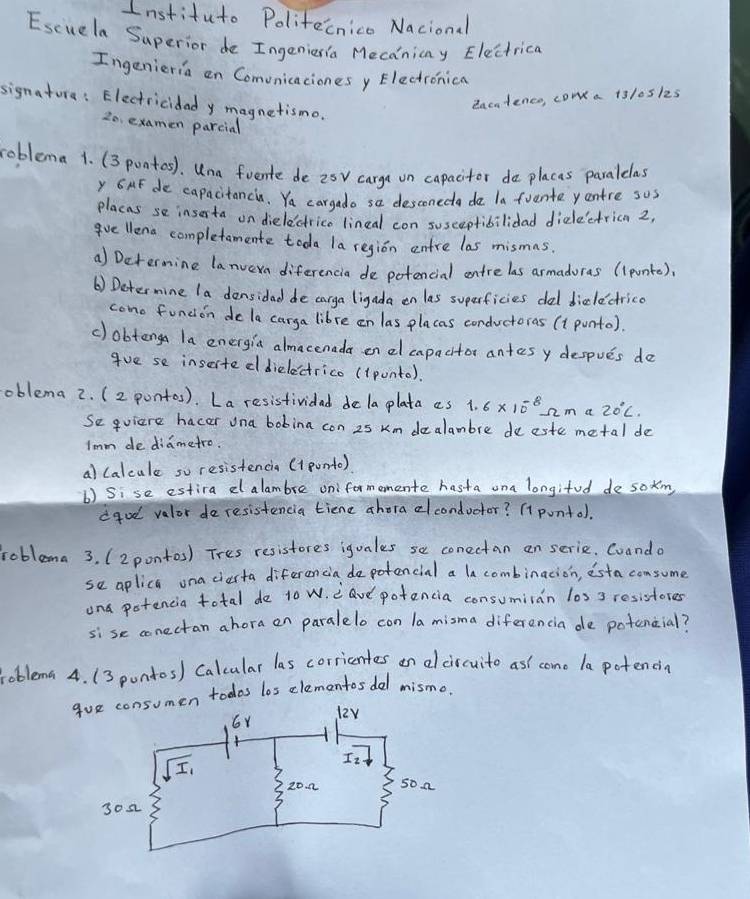 Instituto Politécnico Nacional
Escuela Superior de Ingeniería Mecánica y Eléctrica
Ingeniería en Comunicaciones y Electrónica
signatura: Electricidad y magnetismo.
Zacatenco, CDMX a 13/05/25
2o. examen parcial
roblema 1. (3 puntos). Una fuente de 25V carga un capacitor de placas paralelas
y 6μF de capacitancia. Ya cargado se desconecta de la fuente y entre sus
placas se inserta un dieléctrico lineal con susceptibilidad dieléctrica 2,
que llena completamente toda la región entre las mismas.
a) Determine la nueva diferencia de potencial entre las armaduras (1 punto).
b) Determine la densidad de carga ligada en las superficies del dieléctrico
como función de la carga libre en las placas conductoras (1 punto).
c) Obtenga la energía almacenada en el capacitor antes y después de
que se inserte el dieléctrico (1 punto).
oblema 2. (2 puntos). La resistividad de la plata es 1.6 x 10⁻⁸ Ω m a 20°C.
Se quiere hacer una bobina con 25 Km de alambre de este metal de
1mm de diámetro.
a) Calcule su resistencia (1 punto)
b) Si se estira el alambre uniformemente hasta una longitud de 50Km,
¿qué valor de resistencia tiene ahora el conductor? (1 punto).
roblema 3. (2 puntos) Tres resistores iguales se conectan en serie. Cuando
se aplica una cierta diferencia de potencial a la combinación, ésta consume
una potencia total de 10 W. ¿Qué potencia consumirán los 3 resistores
si se conectan ahora en paralelo con la misma diferencia de potencial?
roblema 4. (3 puntos) Calcular las corrientes en el circuito así como la potencia
que consumen todos los elementos del mismo.
6V
12V
+
I₁
I₂
30Ω
20Ω
50Ω